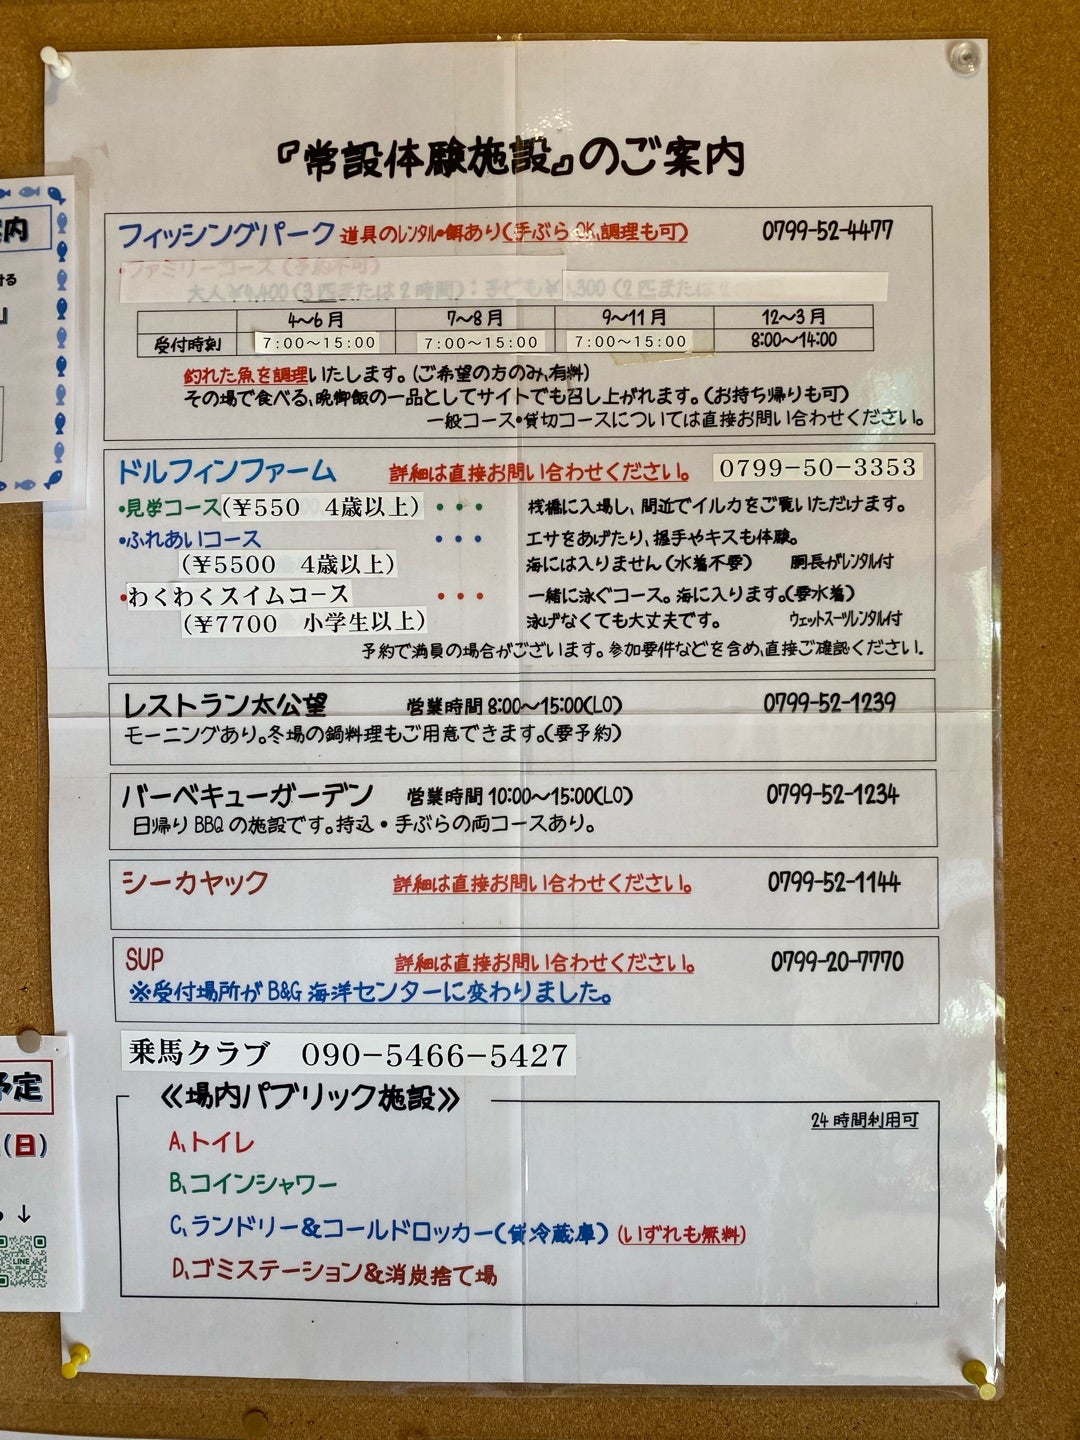 『常設体験施設』のご案内
フィッシングパーク 道具のレンタル・餌あり(手ぶらOK、調理も可) 0799-52-4477
・ファミリーコース(予約不可)
大人¥4,400(3匹または2時間):子ども¥3,300(2匹または2
4～6月 7～8月 9～11月 12～3月
受付時刻 7:00～15:00 7:00～15:00 7:00～15:00 8:00～14:00
釣れた魚を調理いたします。(ご希望の方のみ、有料)
その場で食べる、晩御飯の一品としてサイトでも召し上がれます。(お持ち帰りも可)
一般コース・貸切コースについては直接お問い合わせください。
ドルフィンファーム 詳細は直接お問い合わせください。 0799-50-3353
・見学コース(¥550 4歳以上) ・・・ 桟橋に入場し、間近でイルカをご覧いただけます。
・ふれあいコース ・・・ エサをあげたり、握手やキスも体験。
(¥5500 4歳以上) 海には入りません(水着不要) 胴長がレンタル付
・わくわくスイムコース ・・・ 一緒に泳ぐコース。海に入ります。(要水着)
(¥7700 小学生以上) 泳げなくても大丈夫です。 ウェットスーツレンタル付
予約で満員の場合がございます。参加要件などを含め、直接ご確認ください。
レストラン太公望 営業時間8:00～15:00(LO) 0799-52-1239
モーニングあり。冬場の鍋料理もご用意できます。(要予約)
バーベキューガーデン 営業時間10:00～15:00(LO) 0799-52-1234
日帰りBBQの施設です。持込・手ぶらの両コースあり。
シーカヤック 詳細は直接お問い合わせください。 0799-52-1144
SUP 詳細は直接お問い合わせください。 0799-20-7770
※受付場所がB&G海洋センターに変わりました。
乗馬クラブ 090-5466-5427
≪場内パブリック施設≫
24時間利用可
A、トイレ
B、コインシャワー
C、ランドリー&コールドロッカー(貸冷蔵庫)(いずれも無料)
D、ゴミステーション&消炭捨て場
案内
ける
』
予定
(日)
↓
LINE